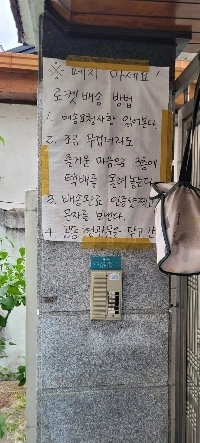 ※ 떼지 마세요!
로켓배송 방법
1. 배송요청사항 읽어본다.
2. 조금 무겁더라도
즐거운 마음으로 3층에
택배를 올려놓는다
3. 배송완료 인증샷찍고
문자를 보낸다.
4.